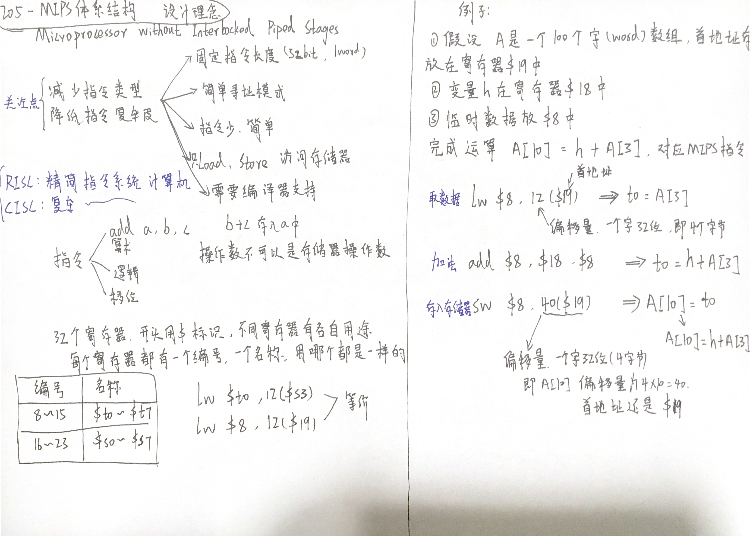 205-MIPS体系结构 设计理念
Microprocessor without Interlocked Piped Stages
关注点
减少指令类型
降低指令复杂度
固定指令长度(32bit, 1word)
简单寻址模式
指令少、简单
只Load, Store 访问存储器
需要编译器支持
RISC: 精简指令系统计算机
CISC: 复杂
指令
add a, b, c b+c 存入a中
算术 操作数不可以是存储器操作数
逻辑
移位
32个寄存器, 开头用$标识, 不同寄存器有各自用途
每个寄存器都有一个编号, 一个名称, 用哪个都是一样的
编号 名称
8~15 $t0~$t7
16~23 $s0~$s7
lw $t0, 12($s3)
lw $8, 12($19)
等价
例子:
① 假设 A是一个100个字(word)数组, 首地址存
放在寄存器$19中
② 变量h在寄存器$18中
③ 临时数据放$8中
完成运算 A[10] = h + A[3], 对应MIPS指令
首地址
取数据 lw $8, 12($19) ⇒ t0=A[3]
偏移量, 一个字32位, 即4个字节
加法 add $8, $18, $8 ⇒ t0=h+A[3]
存入存储器 sw $8, 40($19) ⇒ A[10]=t0
A[10]=h+A[3]
偏移量, 一个字32位(4字节)
即A[10] 偏移量为4×10=40.
首地址还是$19